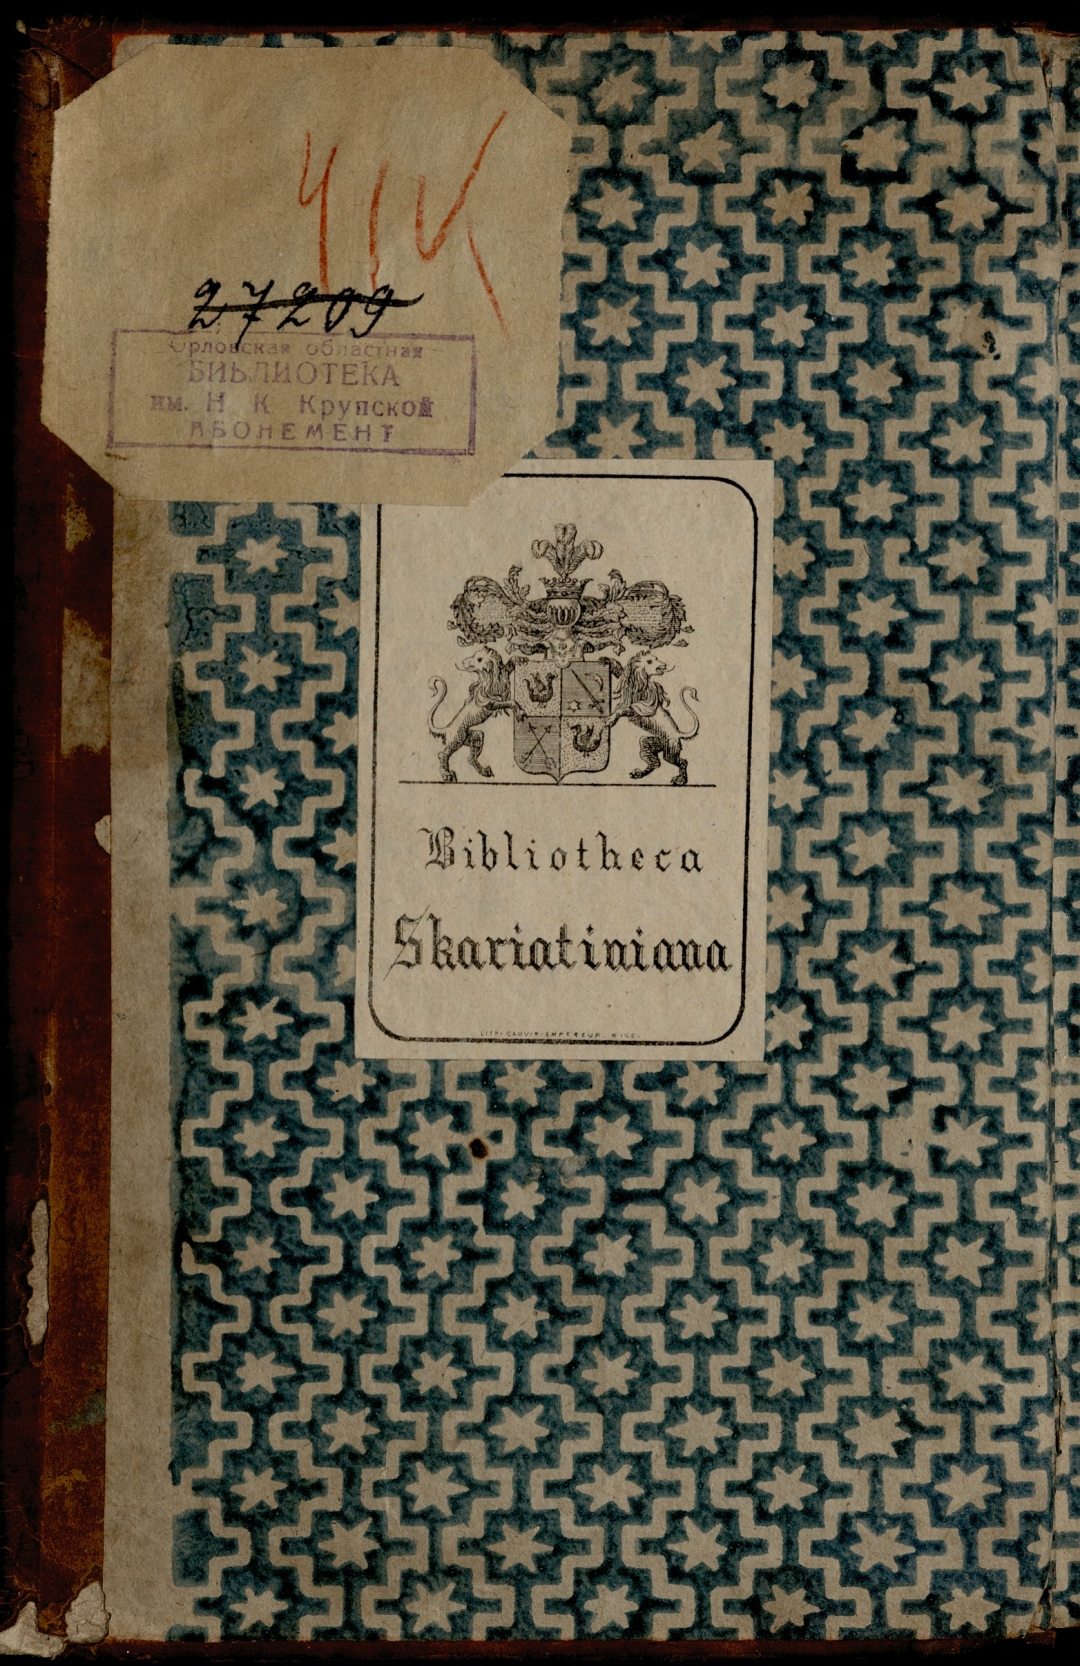 27209
Орловская областная
БИБЛИОТЕКА
им. Н К Крупской
АБОНЕМЕНТ
Bibliotheca
Skariatiniana
LITH. CAUVIN-EMPEREUR. NICE.